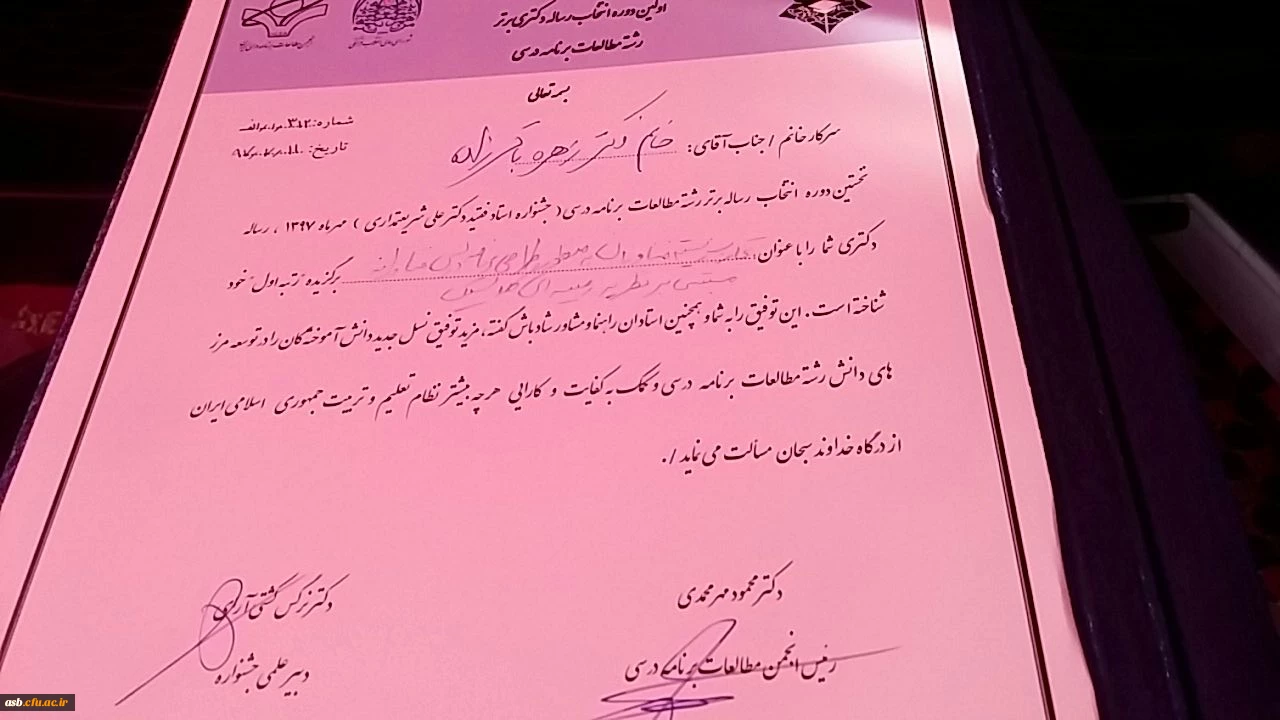 اولین دوره انتخاب رساله دکتری برتر
رشته مطالعات برنامه درسی
بسمه تعالی
شماره:
تاریخ:
سرکار خانم / جناب آقای: خانم دکتر زهره باقرزاده
نخستین دوره انتخاب رساله برتر رشته مطالعات برنامه درسی ( جشنواره استاد فقید دکتر علی شریعتمداری ) مهرماه ۱۳۹۷ ، رساله
دکتری شما را با عنوان برگزیده "رتبه اول" خود
مبتنی بر نظریه زمینه ای
شناخته است. این توفیق را به شما و همچنین استادان راهنما و مشاور شادباش گفته، مزید توفیق نسل جدید دانش آموختگان را در توسعه مرز
های دانش رشته مطالعات برنامه درسی و کمک به کفایت و کارایی هرچه بیشتر نظام تعلیم و تربیت جمهوری اسلامی ایران
از درگاه خداوند سبحان مسألت می نماید /.
دکتر محمود مهرمحمدی
رئیس انجمن مطالعات برنامه درسی
دکتر نرگس کشتی آرای
دبیر علمی جشنواره
asb.cfu.ac.ir